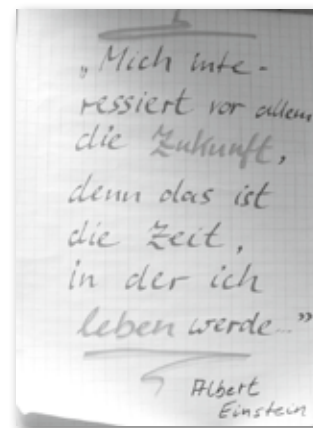 „Mich inte-
ressiert vor allem
die Zukunft,
denn das ist
die Zeit,
in der ich
leben werde..."
Albert
Einstein